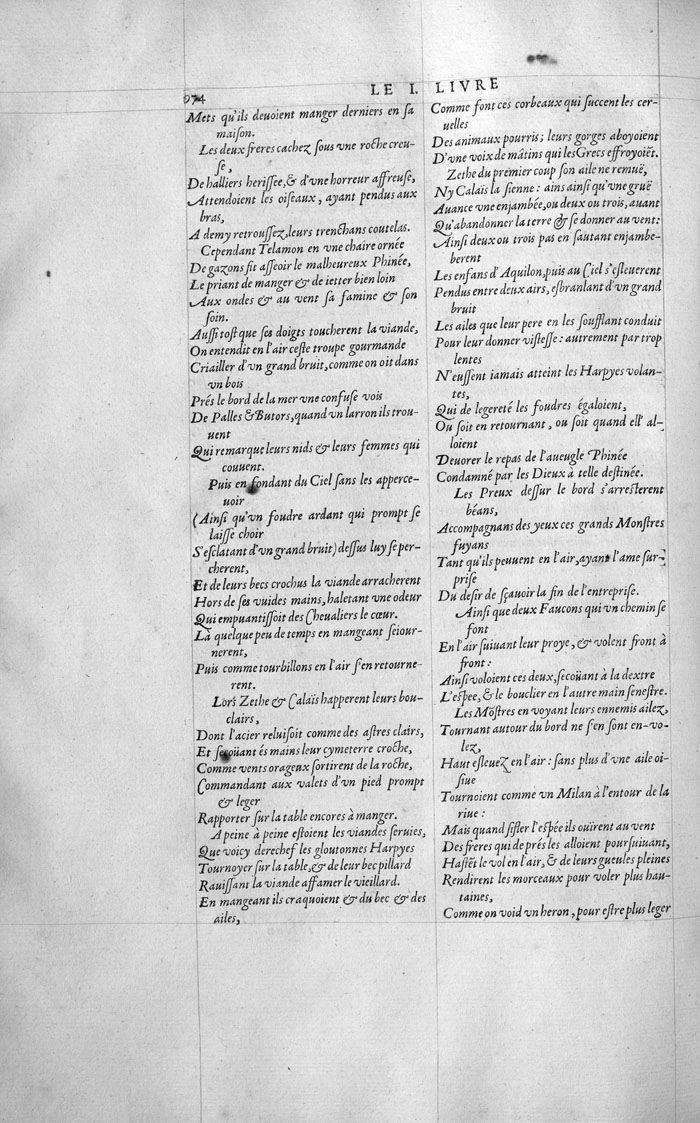 974
LE I. LIVRE
Mets qu'ils deuoient manger derniers en ſa
maiſon.
Les deux freres cachez ſous vne roche creu-
ſe,
De halliers heriſſee, & d'vne horreur affreuſe,
Attendoient les oiſeaux, ayant pendus aux
bras,
A demy retrouſſez, leurs trenchans coutelas.
Cependant Telamon en vne chaire ornée
De gazons fit aſſeoir le malheureux Phinée,
Le priant de manger & de ietter bien loin
Aux ondes & au vent ſa famine & ſon
ſoin.
Auſſi toſt que ſes doigts toucherent la viande,
On entendit en l'air ceſte troupe gourmande
Criailler d'vn grand bruit, comme on oit dans
vn bois
Prés le bord de la mer vne confuſe vois
De Palles & Butors, quand vn larron ils trou-
uent
Qui remarque leurs nids & leurs femmes qui
couuent.
Puis en fondant du Ciel ſans les apperce-
uoir
(Ainſi qu'vn foudre ardant qui prompt ſe
laiſſe choir
S'eſclatant d'vn grand bruit) deſſus luy ſe per-
cherent,
Et de leurs becs crochus la viande arracherent
Hors de ſes vuides mains, haletant vne odeur
Qui empuantiſſoit des Cheualiers le cœur.
Là quelque peu de temps en mangeant ſeiour-
nerent,
Puis comme tourbillons en l'air s'en retourne-
rent.
Lors Zethe & Calaïs happerent leurs bou-
clairs,
Dont l'acier reluiſoit comme des aſtres clairs,
Et ſecoüant és mains leur cymeterre croche,
Comme vents orageux ſortirent de la roche,
Commandant aux valets d'vn pied prompt
& leger
Rapporter ſur la table encores à manger.
A peine à peine eſtoient les viandes ſeruies,
Que voicy derechef les gloutonnes Harpyes
Tournoyer ſur la table, & de leur bec pillard
Rauiſſant la viande affamer le vieillard.
En mangeant ils craquoient & du bec & des
ailes,
Comme font ces corbeaux qui ſuccent les cer-
uelles
Des animaux pourris; leurs gorges aboyoient
D'vne voix de mâtins qui les Grecs effroyoiẽt.
Zethe du premier coup ſon aile ne remuë,
Ny Calaïs la ſienne: ains ainſi qu'vne gruë
Auance vne enjambée, ou deux ou trois, auant
Qu'abandonner la terre & ſe donner au vent:
Ainſi deux ou trois pas en ſautant enjambe-
berent
Les enfans d'Aquilon, puis au Ciel s'eſleuerent
Pendus entre deux airs, eſbranlant d'vn grand
bruit
Les ailes que leur pere en les ſoufflant conduit
Pour leur donner viſteſſe: autrement par trop
lentes
N'euſſent iamais atteint les Harpyes volan-
tes,
Qui de legereté les foudres égaloient,
Ou ſoit en retournant, ou ſoit quand ell' al-
loient
Deuorer le repas de l'aueugle Phinée
Condamné par les Dieux à telle deſtinée.
Les Preux deſſur le bord s'arreſterent
béans,
Accompagnans des yeux ces grands Monſtres
fuyans
Tant qu'ils peuuent en l'air, ayant l'ame ſur-
priſe
Du deſir de ſçauoir la fin de l'entrepriſe.
Ainſi que deux Faucons qui vn chemin ſe
font
En l'air ſuiuant leur proye, & volent front à
front:
Ainſi voloient ces deux, ſecoüant à la dextre
L'eſpee, & le bouclier en l'autre main ſeneſtre.
Les Mõſtres en voyant leurs ennemis ailez,
Tournant autour du bord ne s'en ſont en-vo-
lez,
Haut eſleuez en l'air: ſans plus d'vne aile oi-
ſiue
Tournoient comme vn Milan à l'entour de la
riue:
Mais quand ſifler l'eſpée ils ouïrent au vent
Des freres qui de prés les alloient pourſuiuant,
Haſtẽt le vol en l'air, & de leurs gueules pleines
Rendirent les morceaux pour voler plus hau-
taines,
Comme on void vn heron, pour eſtre plus leger